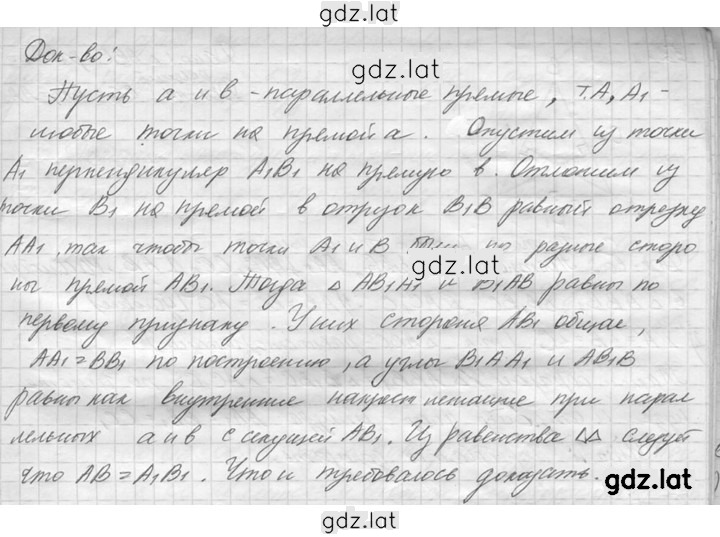 gdz.lat
Док-во:
gdz.lat
Пусть а и в - параллельные прямые, т.А, А₁ -
любые точки на прямой а. Опустим из точки
А₁ перпендикуляр А₁В₁ на прямую в. Отложим из
точки В₁ на прямой в отрезок В₁В равный отрезку
АА₁, так чтобы точки А₁ и В были по разные сторо
gdz.lat
ны прямой АВ₁. Тогда △ АВ₁А₁ и В₁АВ равны по
первому признаку. У них сторона АВ₁ общая,
АА₁=ВВ₁ по построению, а углы В₁АА₁ и АВ₁В
равны как внутренние накрест лежащие при парал
лельных а и в с секущей АВ₁. Из равенства △△ следует
что АВ = А₁В₁. Что и требовалось доказать.
gdz.lat
gdz.lat